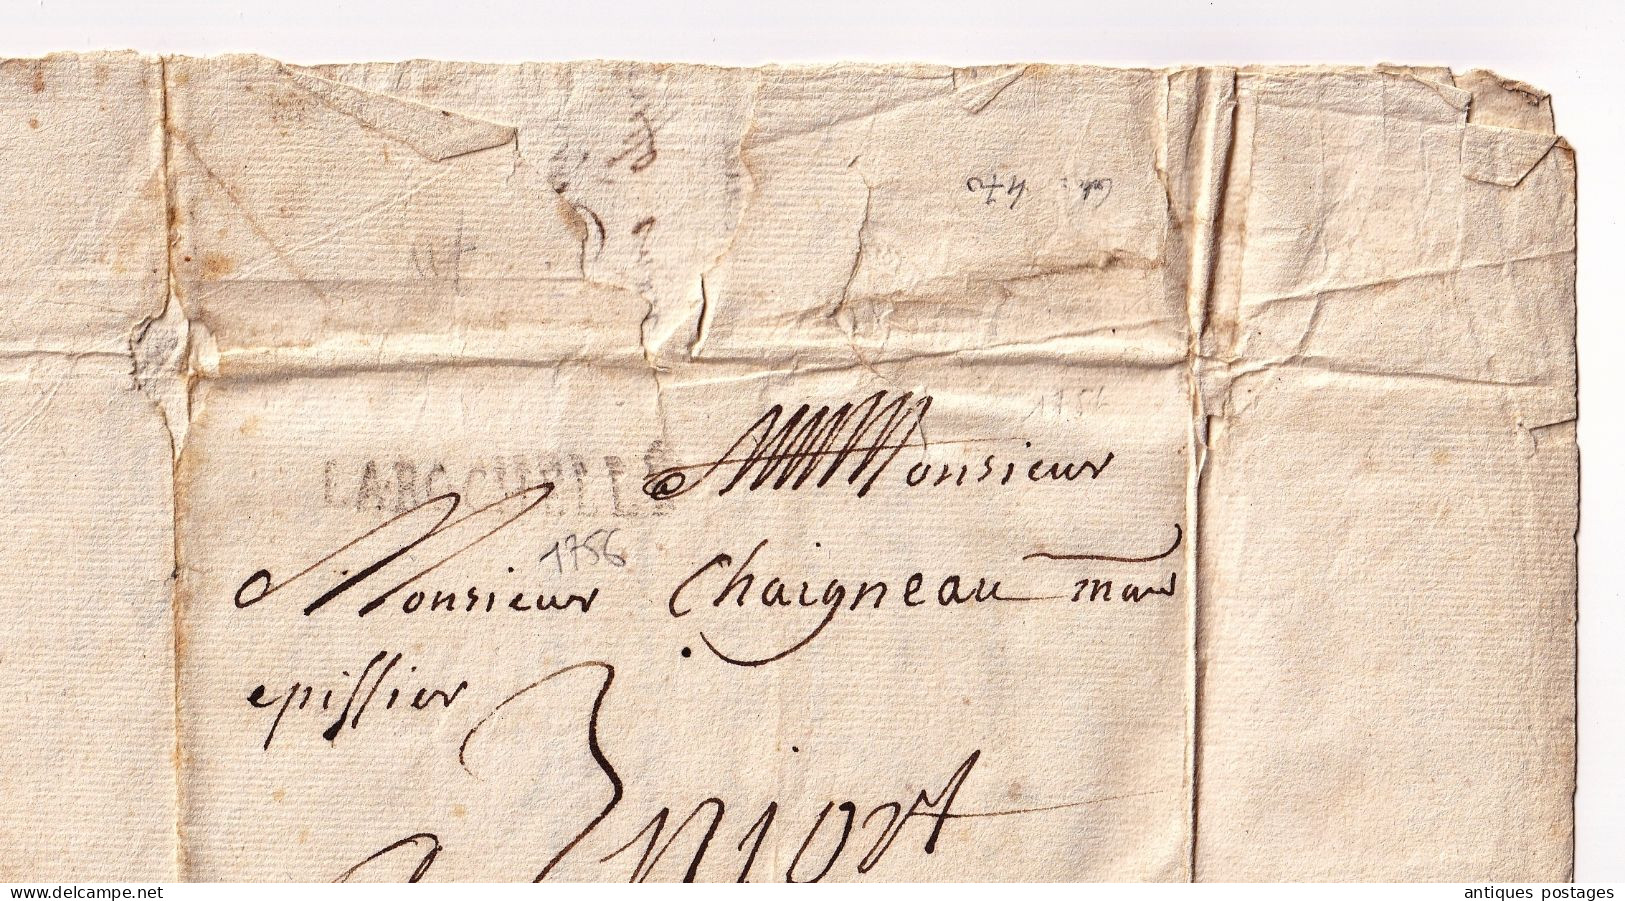 1756
Monsieur
LAROCHELLE
1756
Monsieur Chaigneau
epissier
3
Niort
www.delcampe.net
antiques postages